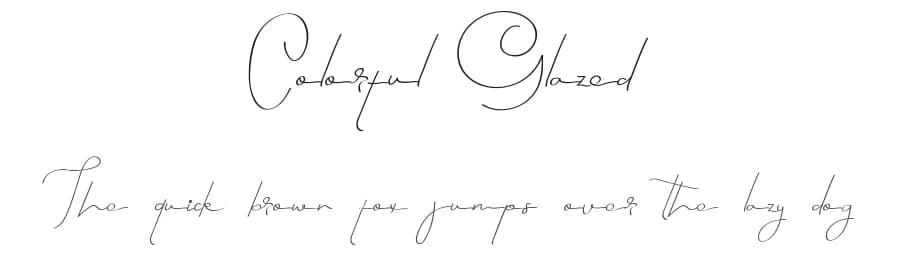 Colorful Glazed
The quick brown fox jumps over the lazy dog